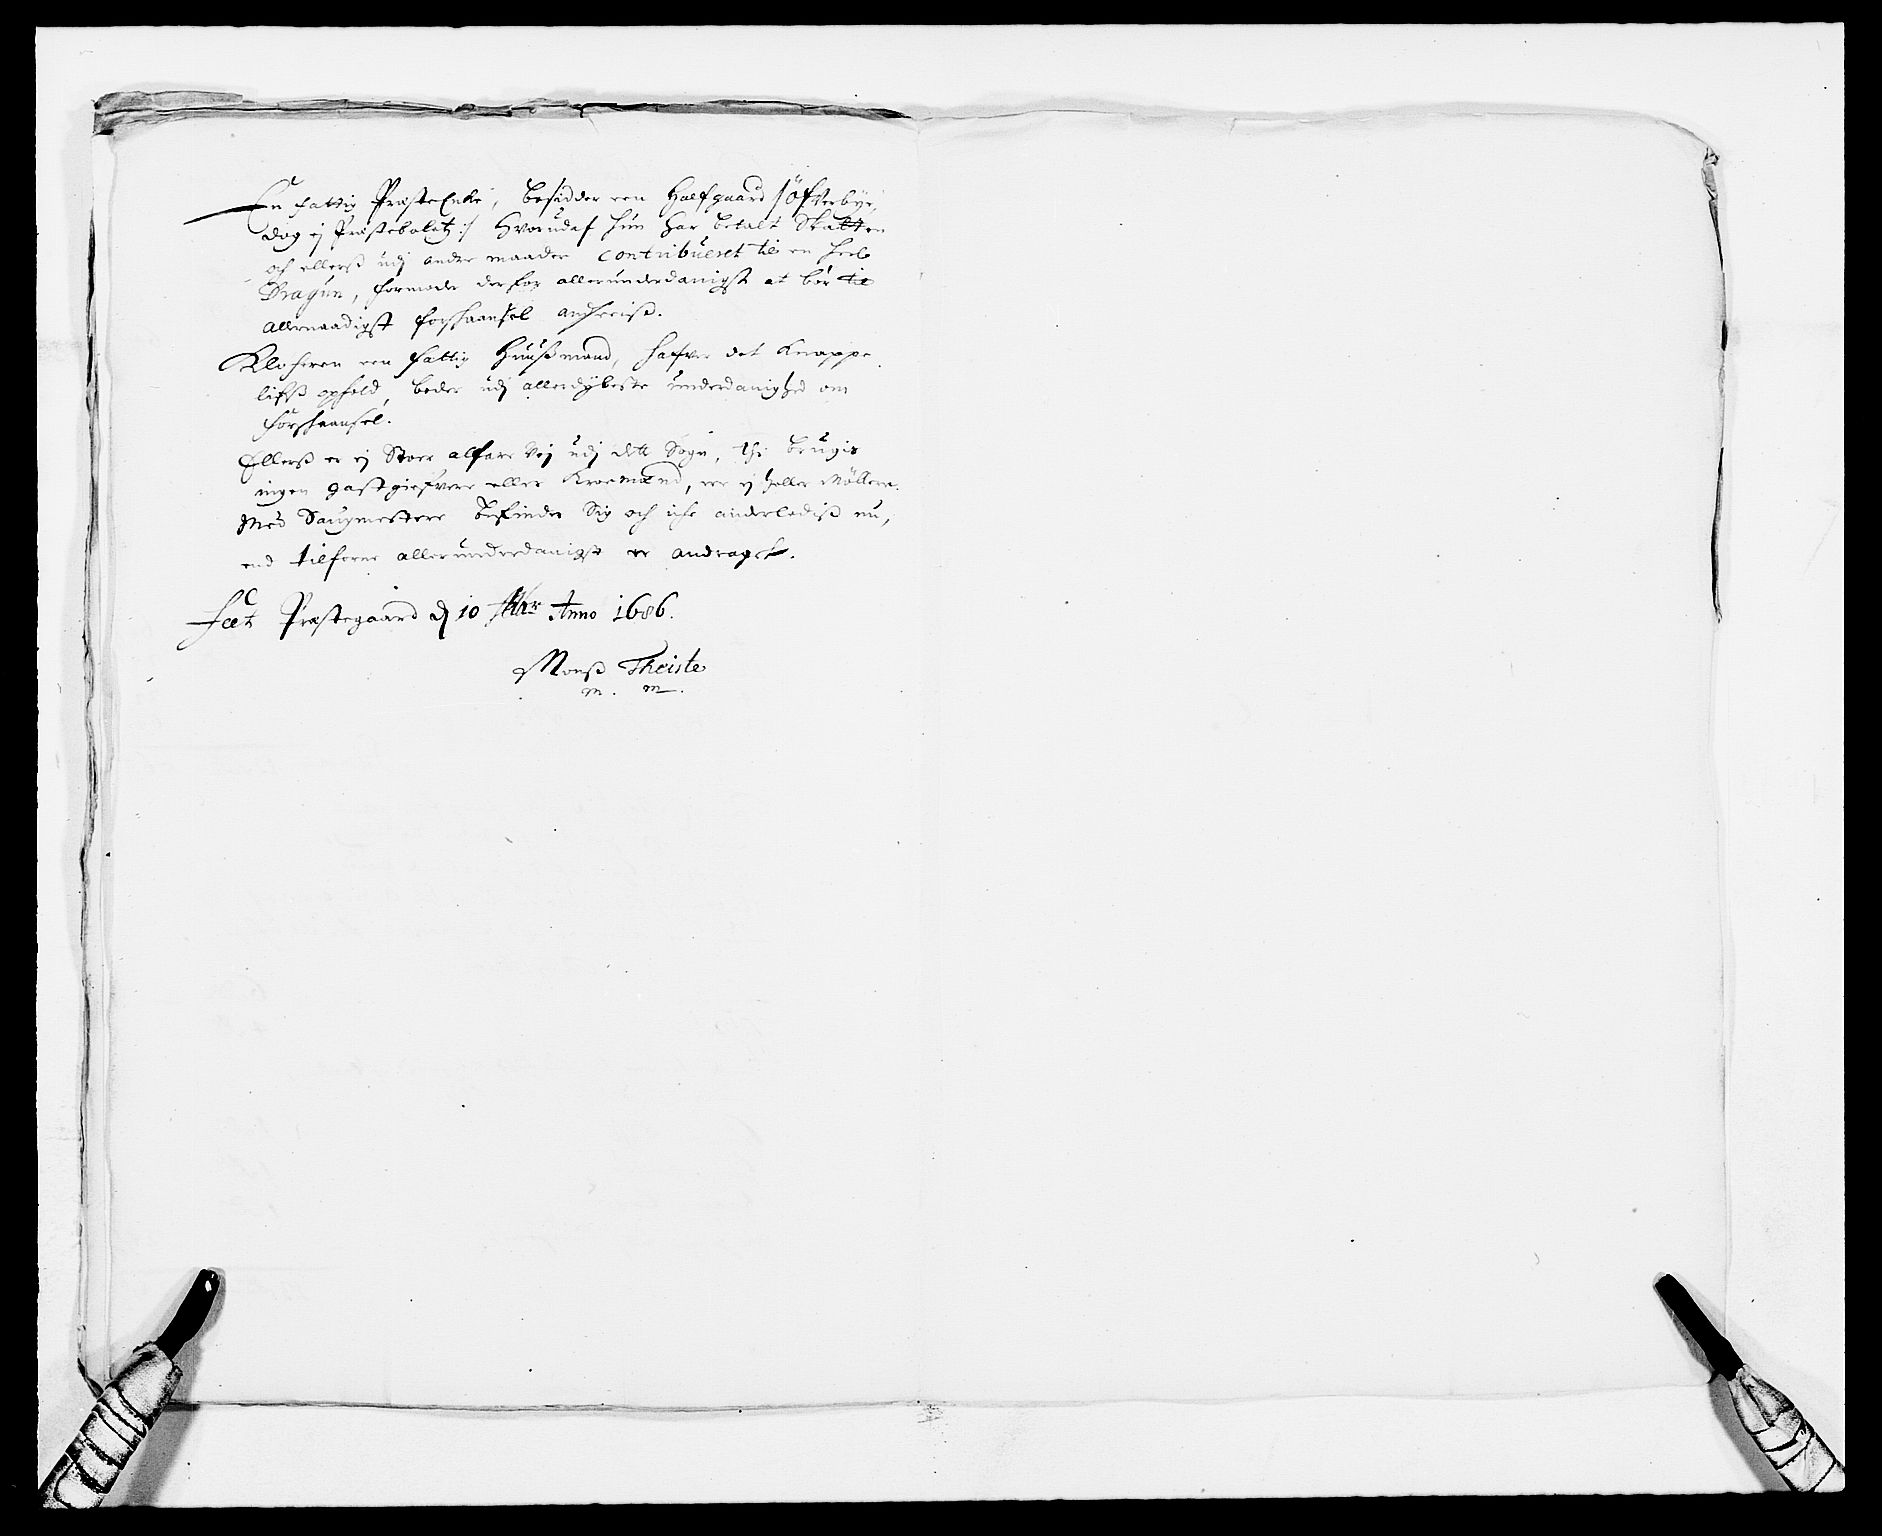 En fattig PræsteEnke, besidder een Halfgaard /Øfverbye,
dog ej Præstebolet :/ hvorudaf hun har betalt Skatten
och ellerß udj andre maader contribueret til en heel
Dragun, formoder derfor allerunderdanigst at bør til
allernaadigst forskaansel andseeiß.
Klocheren een fattig Huußmand, hafver det knappe
lifß ophold, beder udj allerdybeste underdanighed om
forskaansel.
Ellerß er ej Stoer alfare Vej udj dette Sogn, thi brugis
ingen gastgiefvere eller Kroemænd, ere ej heller Møllere.
Med Saugmestere befinder Sig och iche anderlediß nu,
end tilforne allerunderdanigst er andraget.
Feet Præstegaard d 10 Anno 1686.
Monß Theiste
m. m.